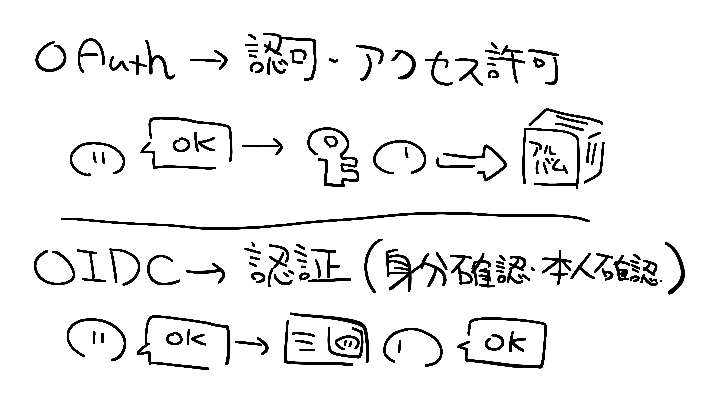 OAuth → 認可・アクセス許可
OK →
アル
バム
OIDC → 認証(身分確認・本人確認)
OK → OK